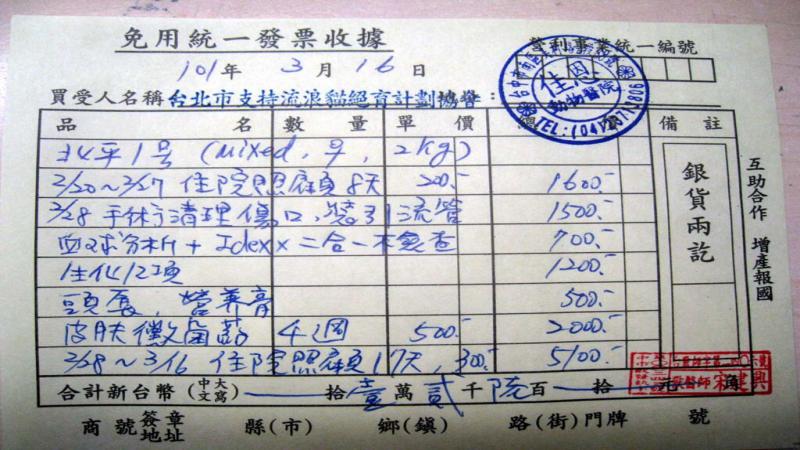 免用統一發票收據
營利事業統一編號
101年 3月16日
台中市南區 佳恩 動物醫院 TEL:(04)
買受人名稱 台北市支持流浪貓絕育計劃協會 :
品 名 數 量 單 價 總 價 備 註
北平1號 (Mixed, ♀, 2kg)
2/20~2/27 住院照顧費 8天 200.- 1600.-
2/28 手術清理傷口, 裝引流管 1500.-
血球分析 + Idexx 二合一檢查 700.-
生化12項 1200.-
頭套, 營養膏 500.-
皮膚黴菌藥 4週 500.- 2000.-
2/28~3/16 住院照顧費 17天, 300.- 5100.-
合計新台幣(中文大寫) 拾壹萬貳千陸百 拾 元 角
商號簽章地址 縣(市) 鄉(鎮) 路(街)門牌 號
銀貨兩訖
互助合作 增產報國